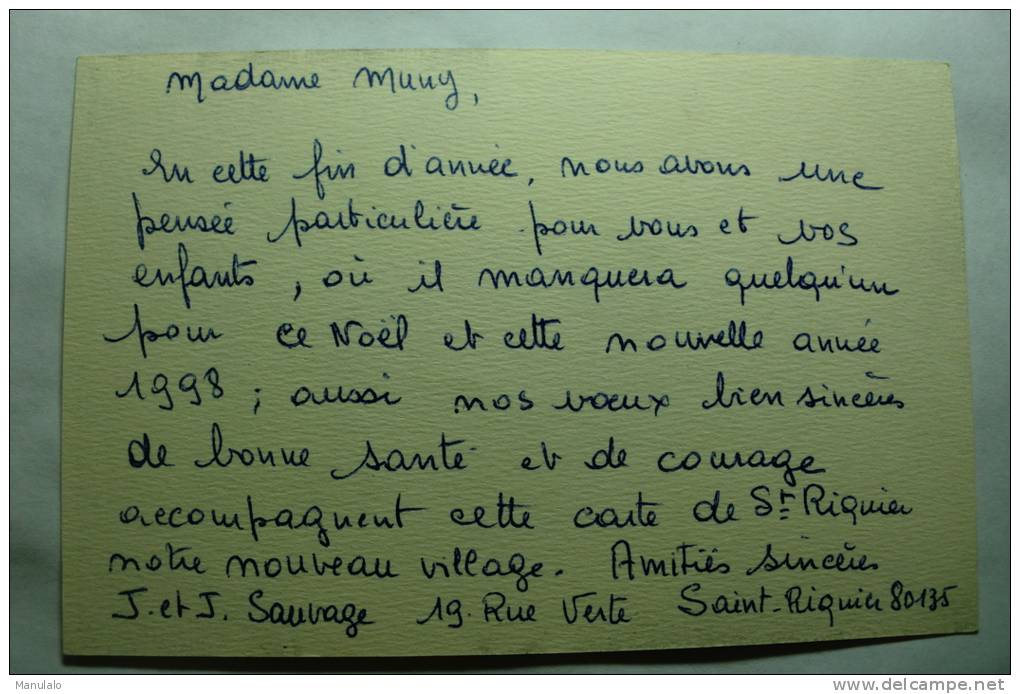 Madame Muny,
En cette fin d'année, nous avons une
pensée particulière pour vous et vos
enfants, où il manquera quelqu'un
pour ce Noël et cette nouvelle année
1998 ; aussi nos vœux bien sincères
de bonne santé et de courage
accompagnent cette carte de St Riquier
notre nouveau village. Amitiés sincères
J. et J. Sauvage 19. Rue Verte Saint-Riquier 80135
Manulalo
delcampe.net